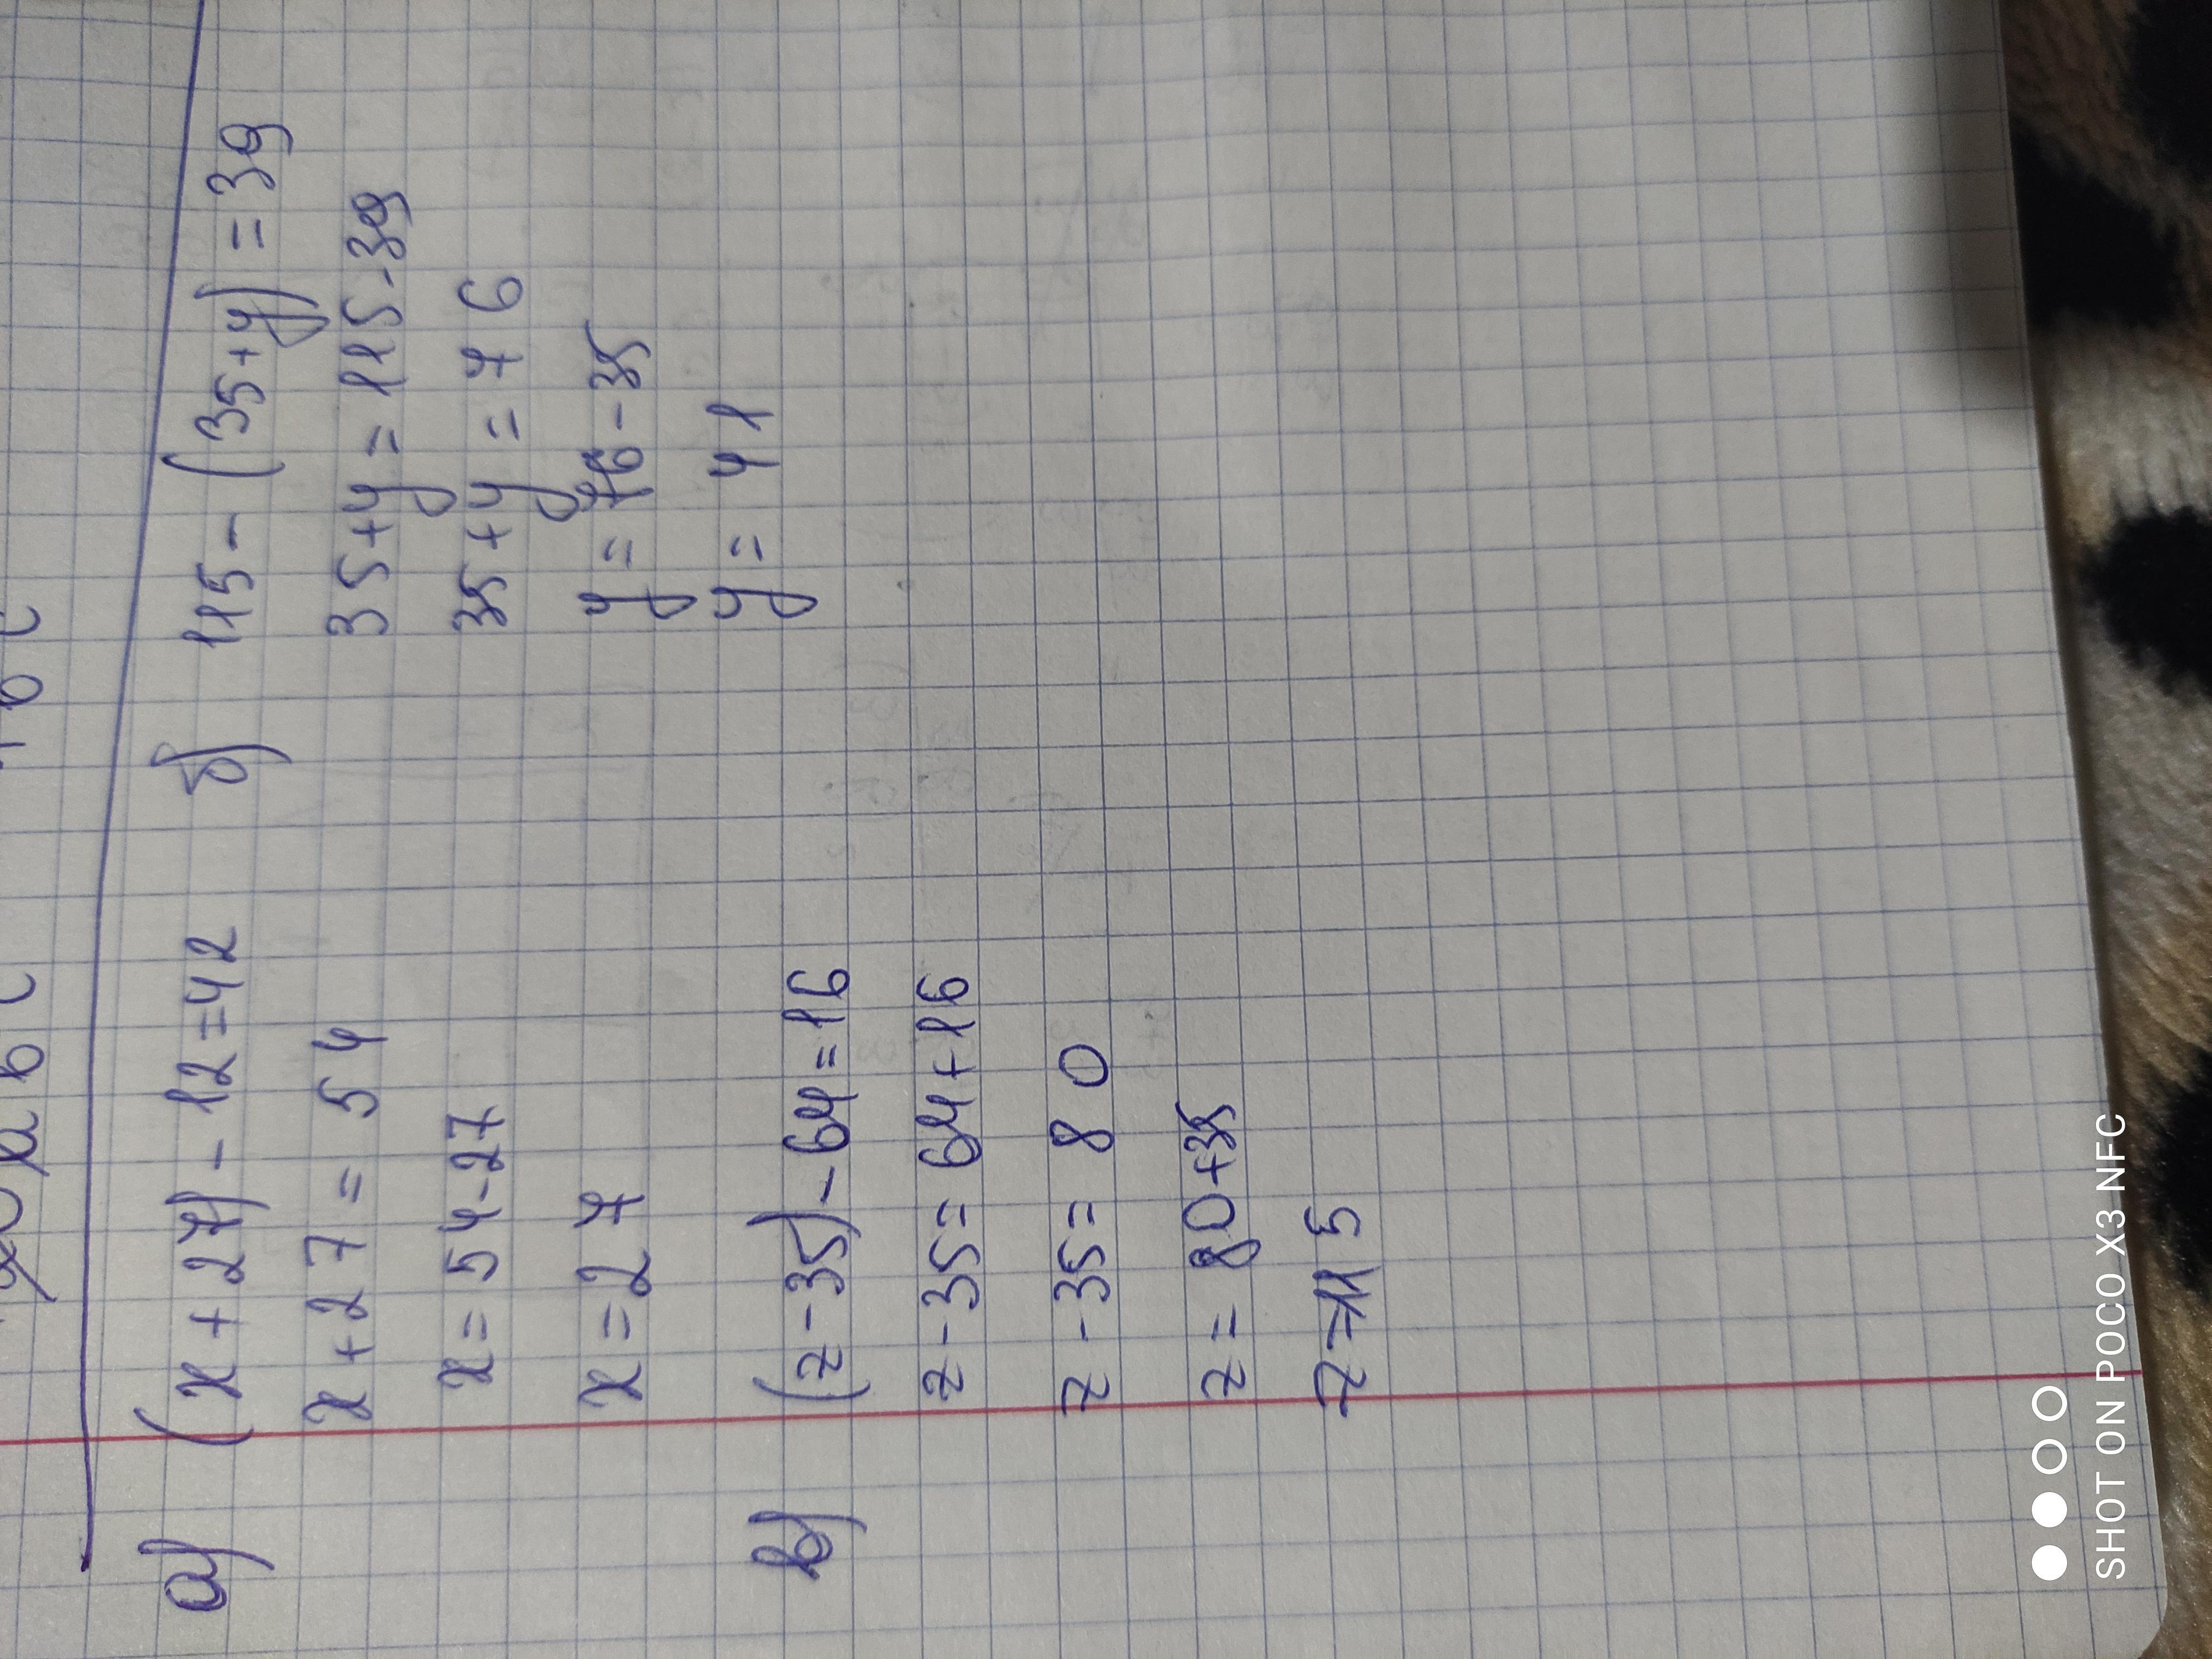 а) (x + 27) - 12 = 42
x + 27 = 54
x = 54 - 27
x = 27
б) 115 - (35 + y) = 39
35 + y = 115 - 39
35 + y = 76
y = 76 - 35
y = 41
в) (z - 35) - 64 = 16
z - 35 = 64 + 16
z - 35 = 80
z = 80 + 35
z = 115
SHOT ON POCO X3 NFC